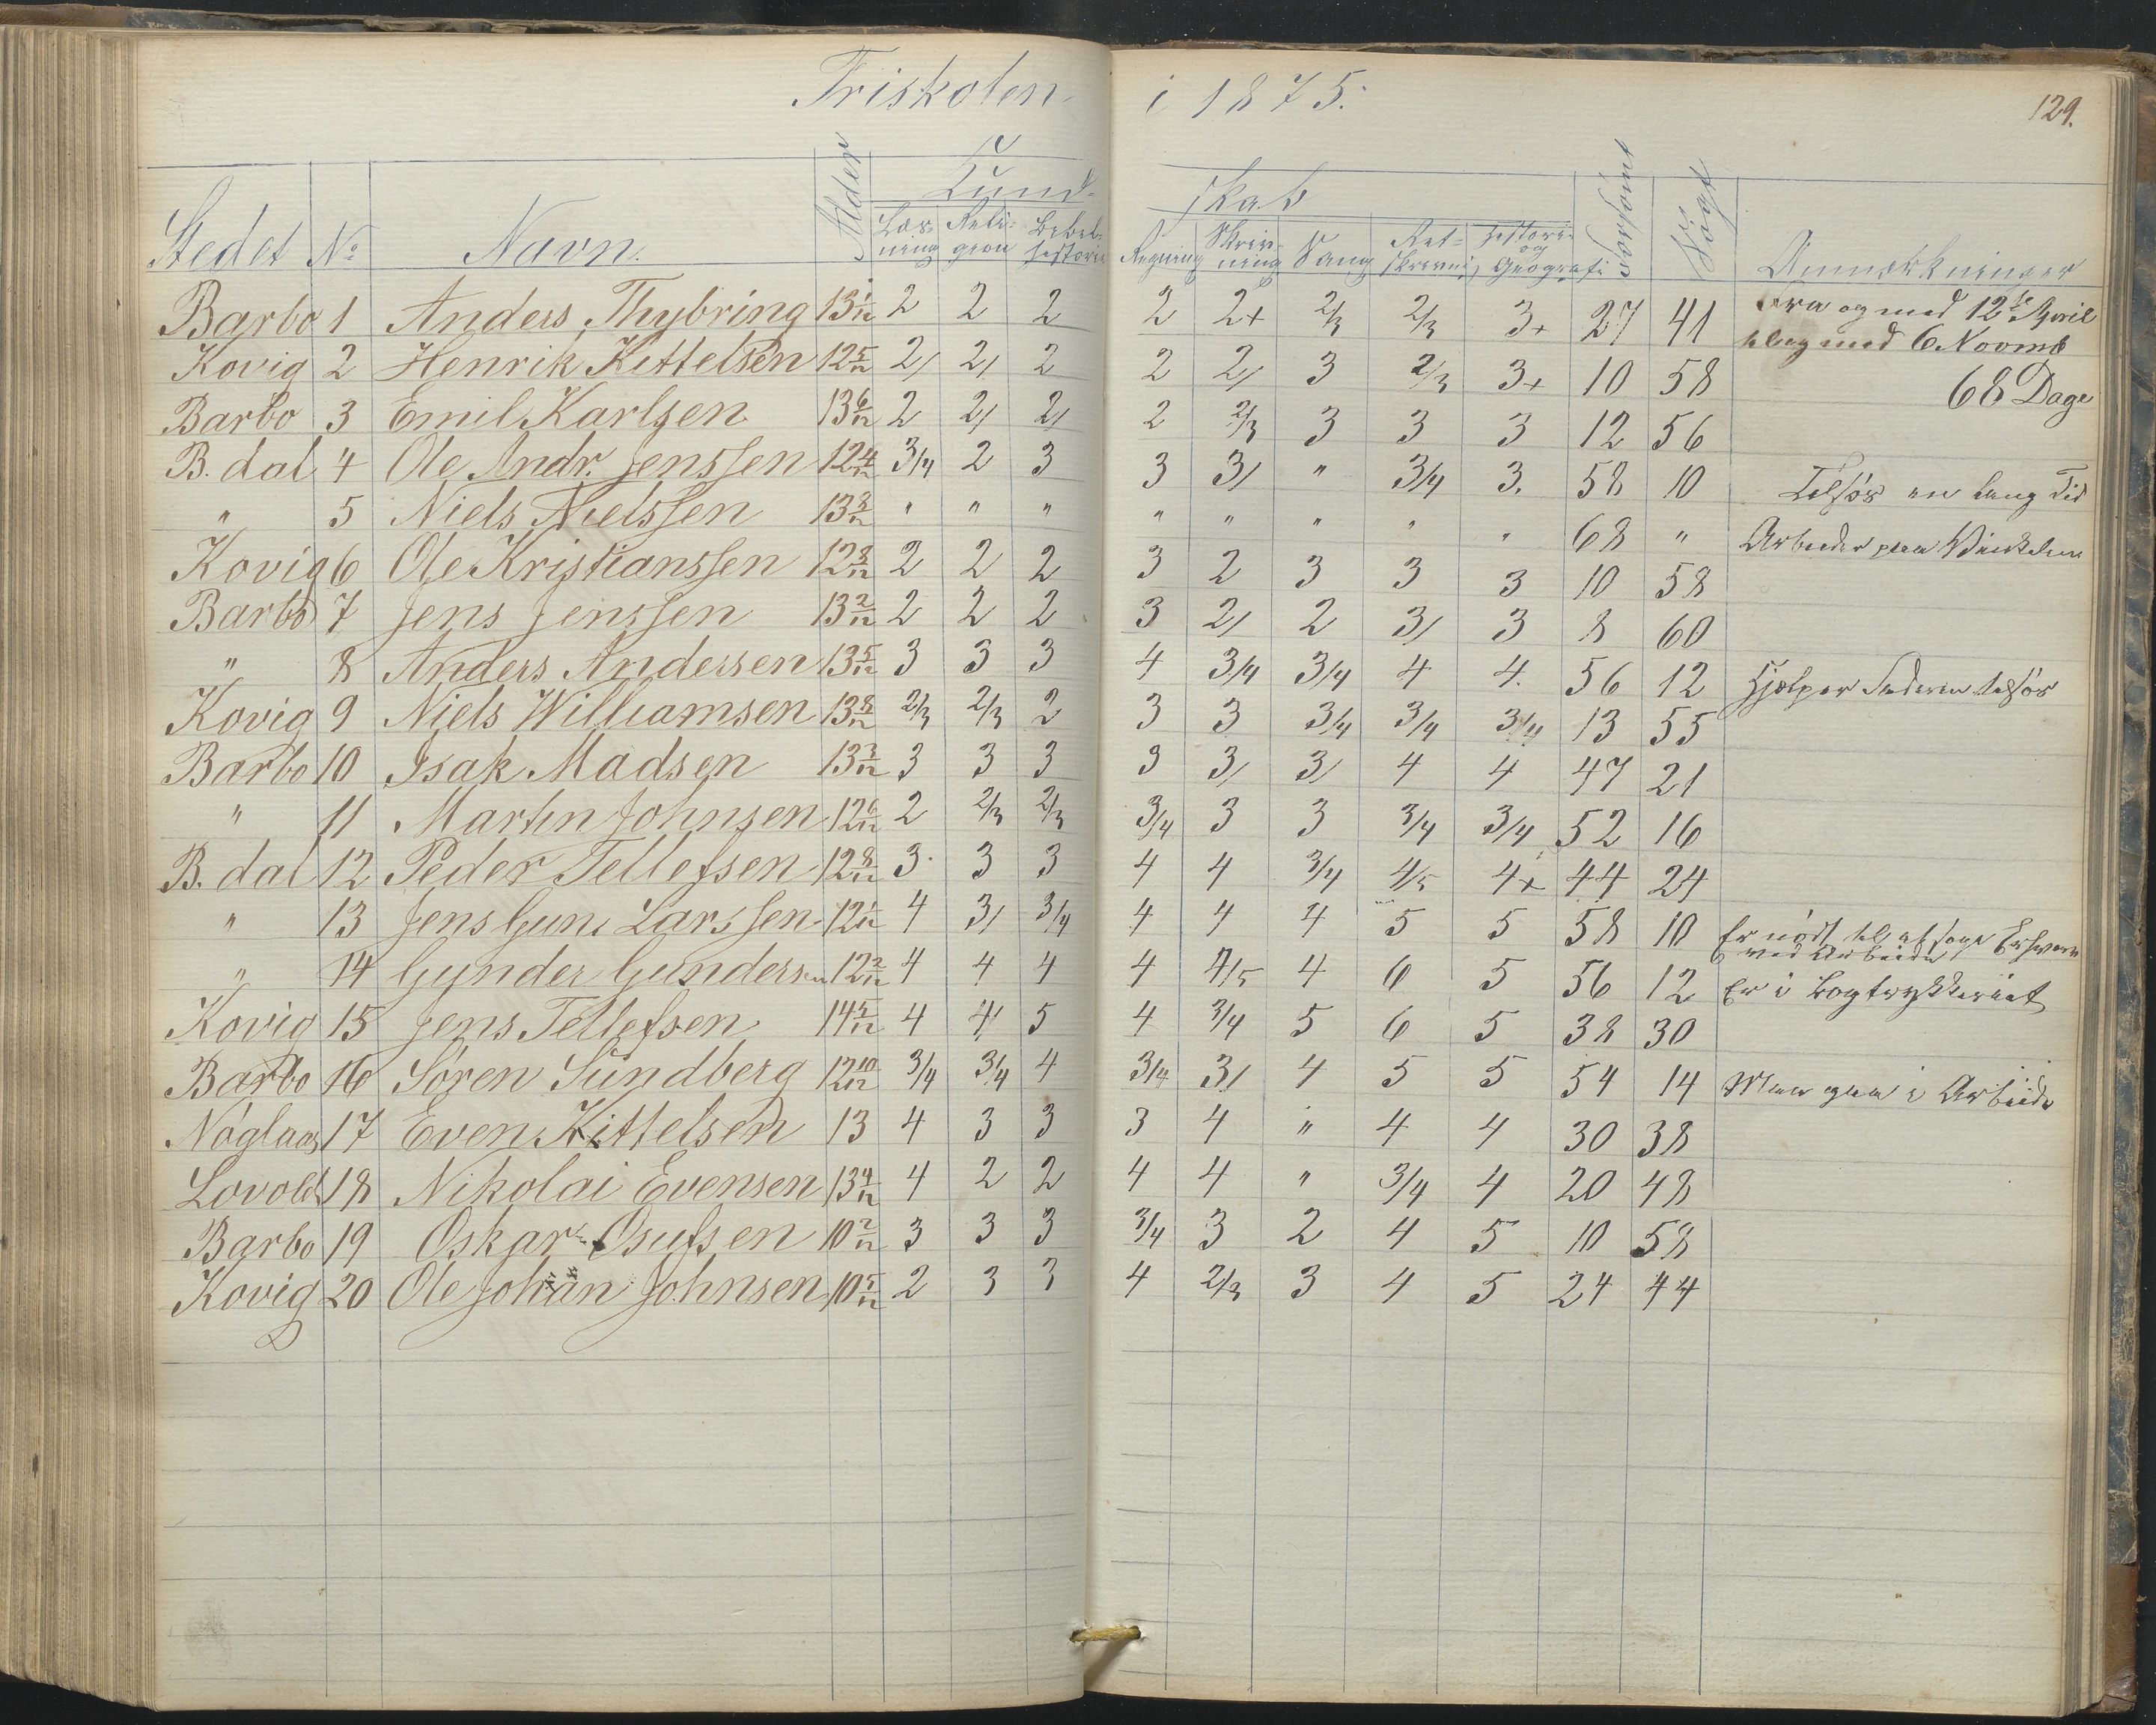 Friskolen i 1875.
129.
Stedet No Navn. Alder Kund- skab Forsømt Søgt Anmærkninger
Læsning Religion Bibelhistorie Regning Skrivning Sang Retskrivning Historie og Geografi
Barbo 1 Anders Thybring 13 1/12 2 2 2 2 2+ 2/3 2/3 3+ 27 41 Fra og med 12te April
til og med 6 Novmb
Kovig 2 Henrik Kittelsen 12 5/12 2/ 2/ 2 2 2/ 3 2/3 3+ 10 58 68 Dage
Barbo 3 Emil Karlsen 13 6/12 2 2/ 2/ 2 2/3 3 3 3 12 56
B. dal 4 Ole Andr. Jenssen 12 4/12 3/4 2 3 3 3/ " 3/4 3. 58 10 Tilsjøs en lang Tid
" 5 Niels Nielssen 13 3/12 " " " " " " " " 68 " Arbeider paa
Kovig 6 Ole Kristianssen 12 8/12 2 2 2 3 2 3 3 3 10 58
Barbo 7 Jens Jenssen 13 2/12 2 2 2 3 2/ 2 3/ 3 8 60
" 8 Anders Andersen 13 5/12 3 3 3 4 3/4 3/4 4 4. 56 12 Hjælper Faderen tilsjøs
Kovig 9 Niels Williamsen 13 8/12 2/3 2/3 2 3 3 3/4 3/4 3/4 13 55
Barbo 10 Isak Madsen 13 3/12 3 3 3 3 3/ 3/ 4 4 47 21
" 11 Martin Johnsen 12 6/12 2 2/3 2/3 3/4 3 3 3/4 3/4 52 16
B. dal 12 Peder Tellefsen 12 8/12 3. 3 3 4 4 3/4 4/5 4+ 44 24
" 13 Jens Gun. Larssen 12 1/12 4 3/ 3/4 4 4 4 5 5 58 10 Er nødt til at søge Erhverv
ved Arbeide
" 14 Gunder Gundersen 12 2/12 4 4 4 4 4/5 4 6 5 56 12 Er i Bogtrykkeriet
Kovig 15 Jens Tellefsen 14 5/12 4 4/ 5 4 3/4 5 6 5 38 30
Barbo 16 Sören Sundberg 12 10/12 3/4 3/4 4 3/4 3/ 4 5 5 54 14 Maa gaa i Arbeide
Nöglaas 17 Even Kittelsen 13 4 3 3 3 4 " 4 4 30 38
Lovold 18 Nikolai Evensen 13 4/12 4 2 2 4 4 " 3/4 4 20 48
Barbo 19 Oskar Osufsen 10 2/12 3 3 3 3/4 3 2 4 5 10 58
Kovig 20 Ole Johan Johnsen 10 5/12 2 3 3 4 2/3 3 4 5 24 44